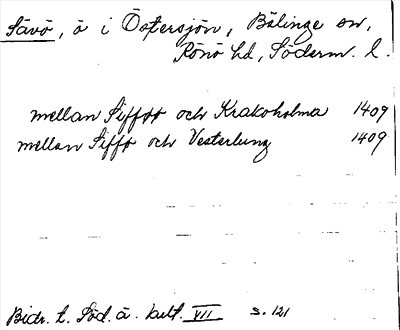 Sävö, ö i Östersjön, Bälinge sn,
Rönö hd, Söderm. l.
mellan Sifföö och Krakoholma 1409
mellan Siffö och Vesterlung 1409
Bidr. t. Söd. ä. kult. VII s. 121